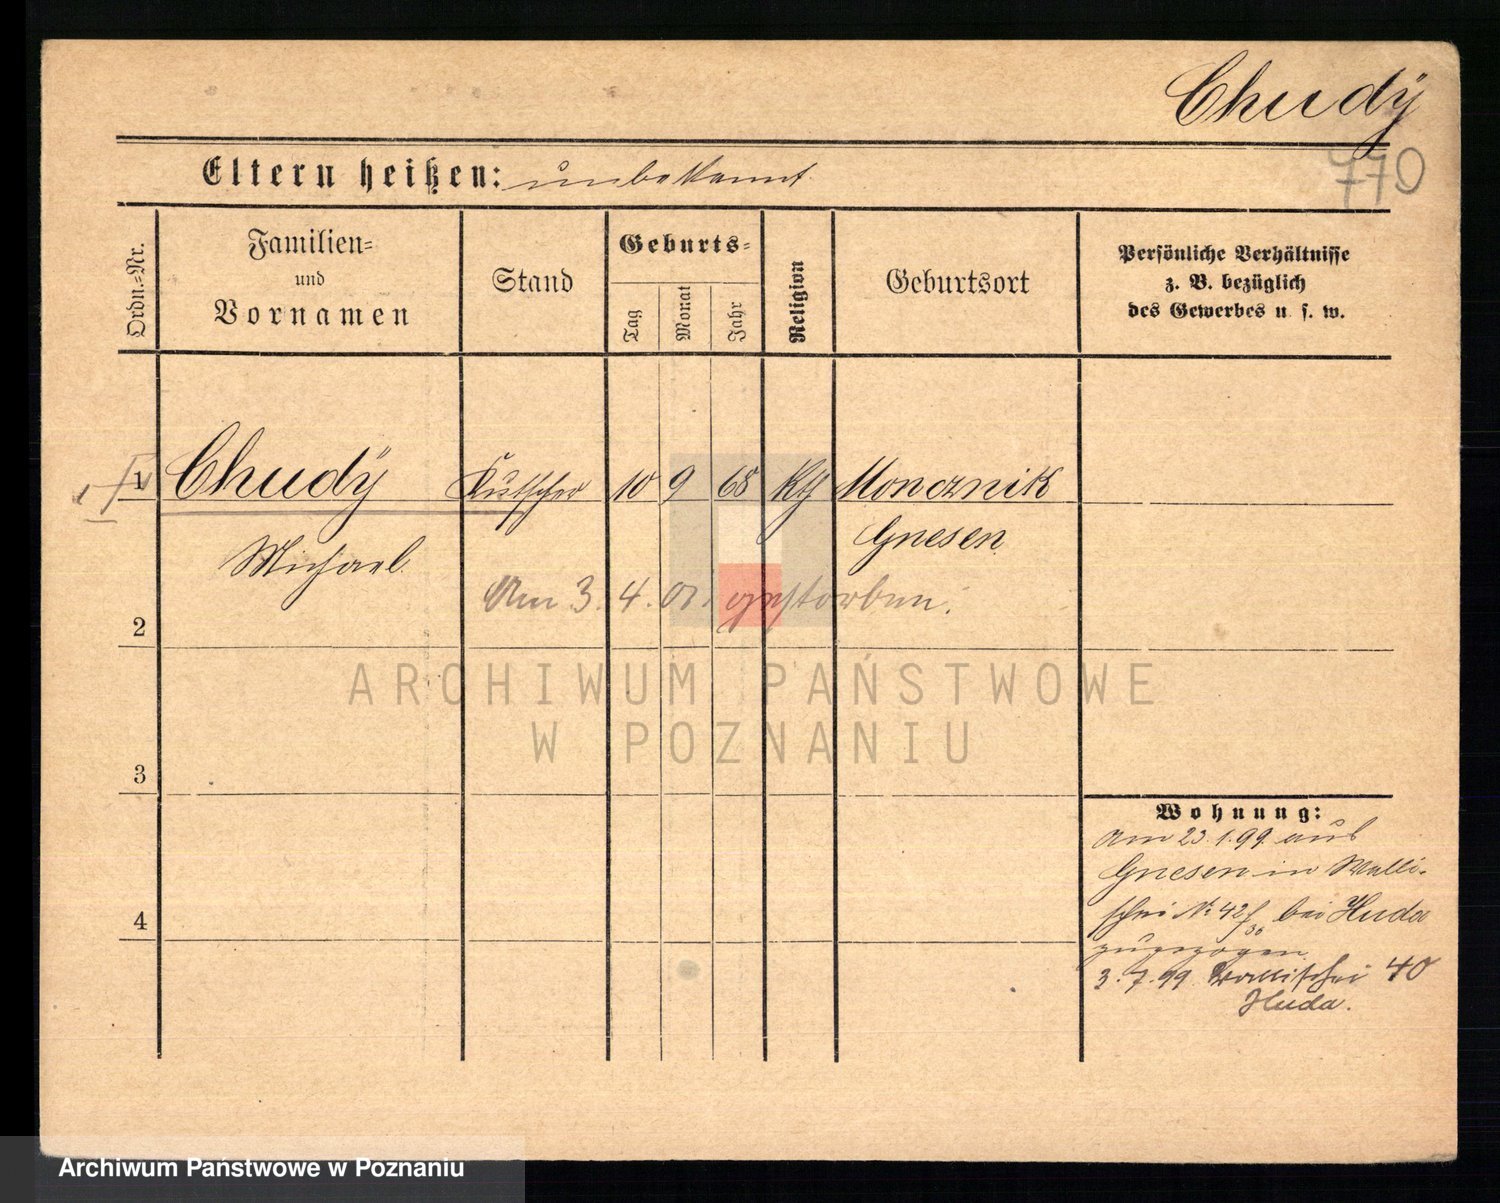 Chudÿ
770
Eltern heißen: unbekannt
Ordn.=Nr.
Familien=
und
Vornamen
Stand
Geburts=
Tag
Monat
Jahr
Religion
Geburtsort
Persönliche Verhältnisse
z. B. bezüglich
des Gewerbes u. s. w.
1 Chudÿ Kutscher 10 9 68 Kth Moncznik
Gnesen
Michael
Am 3. 4. 01. gestorben.
2
ARCHIWUM PAŃSTWOWE
W POZNANIU
3
Wohnung:
Am 23.1.99. aus
Gnesen in Walli-
schei No 42 bei Huda
zugezogen
4
3.7.99. Wallischei 40
Huda.
Archiwum Państwowe w Poznaniu